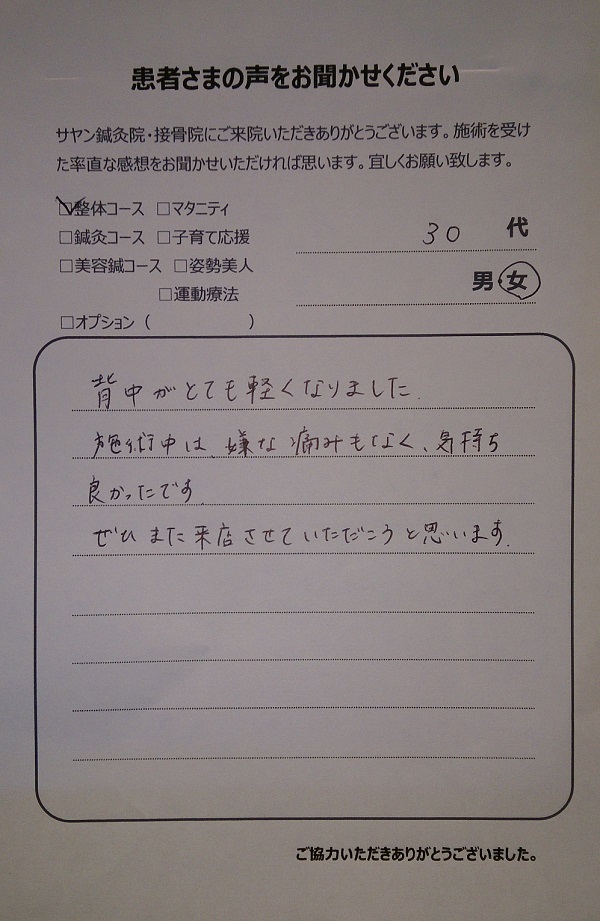 患者さまの声をお聞かせください
サヤン鍼灸院・接骨院にご来院いただきありがとうございます。施術を受け
た率直な感想をお聞かせいただければ思います。宜しくお願い致します。
☑整体コース □マタニティ
□鍼灸コース □子育て応援
30 代
□美容鍼コース □姿勢美人
男・女
□運動療法
□オプション（ ）
背中がとても軽くなりました.
施術中は、嫌な痛みもなく、気持ち
良かったです.
ぜひまた来店させていただこうと思います.
ご協力いただきありがとうございました。